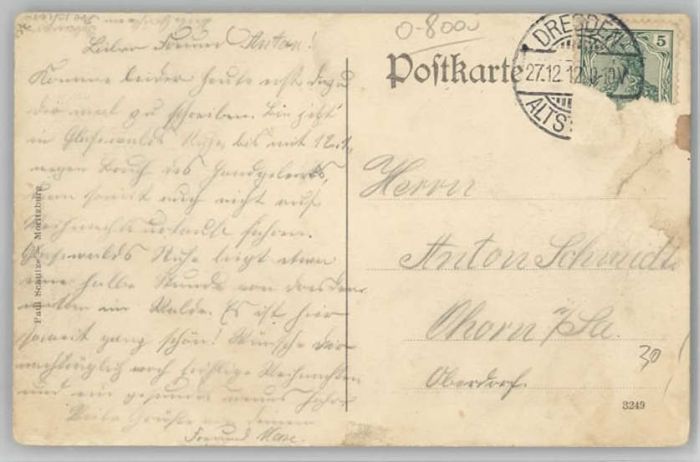 Lieber Freund Anton!
Komme leider heute erst dazu
dir mal zu schreiben. Bin jetzt
in Glasewalds Ruhe, bis mit
wegen Bruch des Handgelenks,
kann somit auch nicht auf
Weihnachtsurlaub fahren.
Glasewalds Ruhe liegt etwa
eine halbe Stunde von Dresden
mitten im Walde. Es ist hier
soweit ganz schön! Wünsche dir
nachträglich noch fröhliche Weihnachten
und ein gesundes neues Jahr.
Viele Grüße von deinem
Freund Max.
Paul Schulze, Moritzburg
0-8000
Postkarte
DRESDEN-
27.12.12
ALTST
5
Herrn
Anton Schmidt
Ohorn i/Sa.
Oberdorf.
30
3249